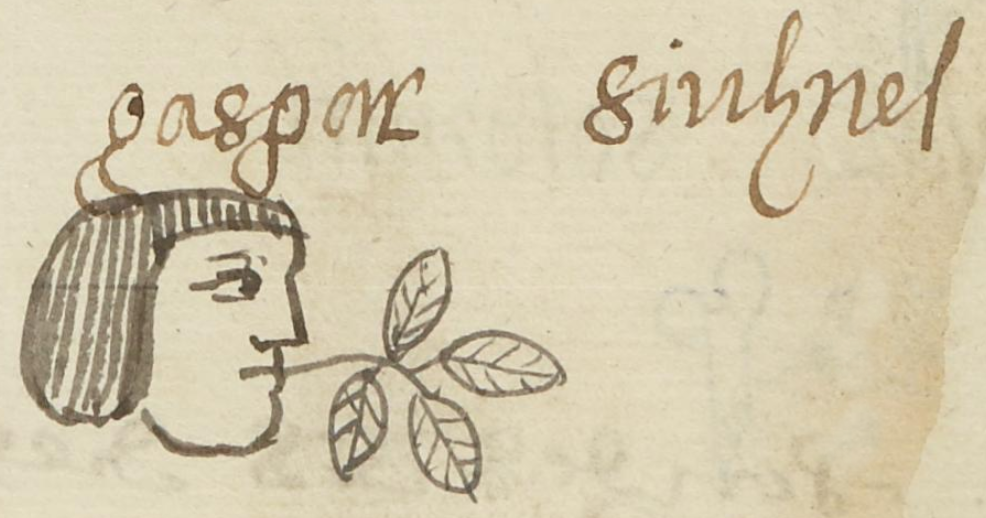 gaspar siuhnel